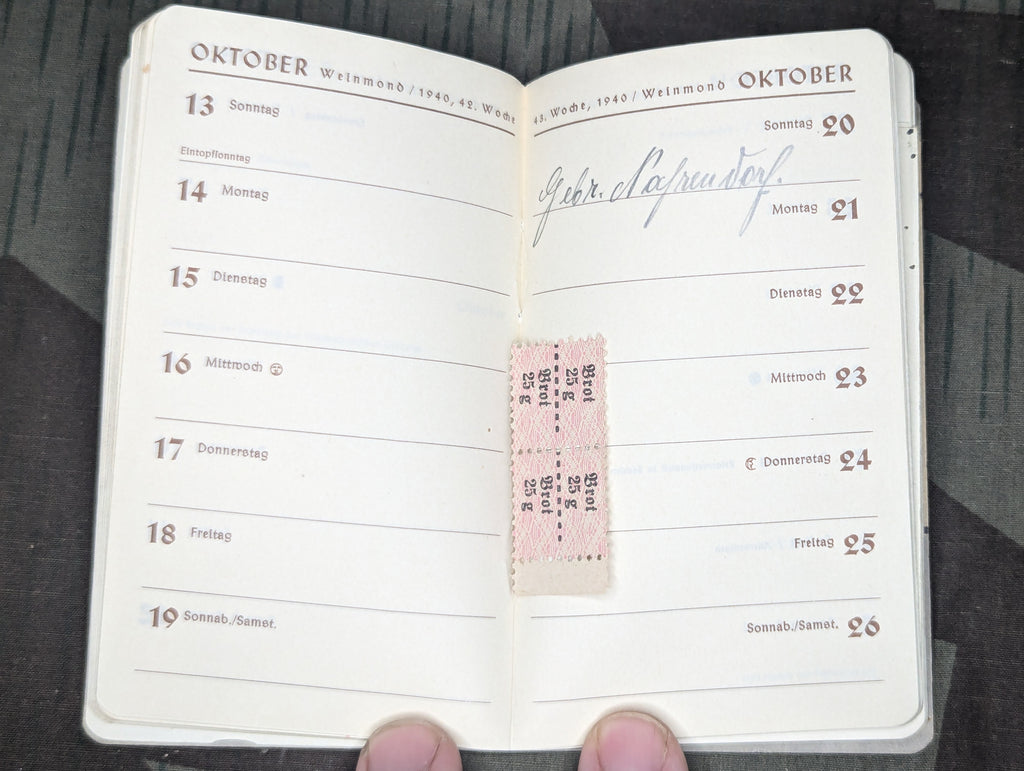 OKTOBER Weinmond / 1940, 42. Woche
13 Sonntag
Eintopfsonntag
14 Montag
15 Dienstag
16 Mittwoch
17 Donnerstag
18 Freitag
19 Sonnab./Samst.
43. Woche, 1940 / Weinmond OKTOBER
Sonntag 20
Gebr. Nahrendorf.
Montag 21
Dienstag 22
Mittwoch 23
Donnerstag 24
Freitag 25
Sonnab./Samst. 26
Brot
25 g
Brot
25 g
Brot
25 g
Brot
25 g